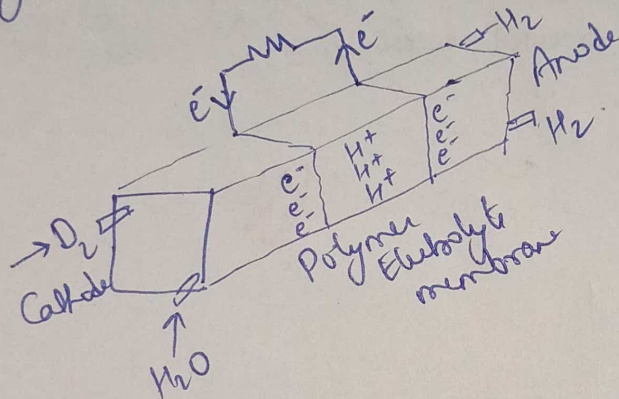 H2
é
é
Anode
H2
e-
e-
e-
H+
H+
H+
e-
e-
e-
D2
Cathode
Polymer
Electrolyte
membrane
H2O